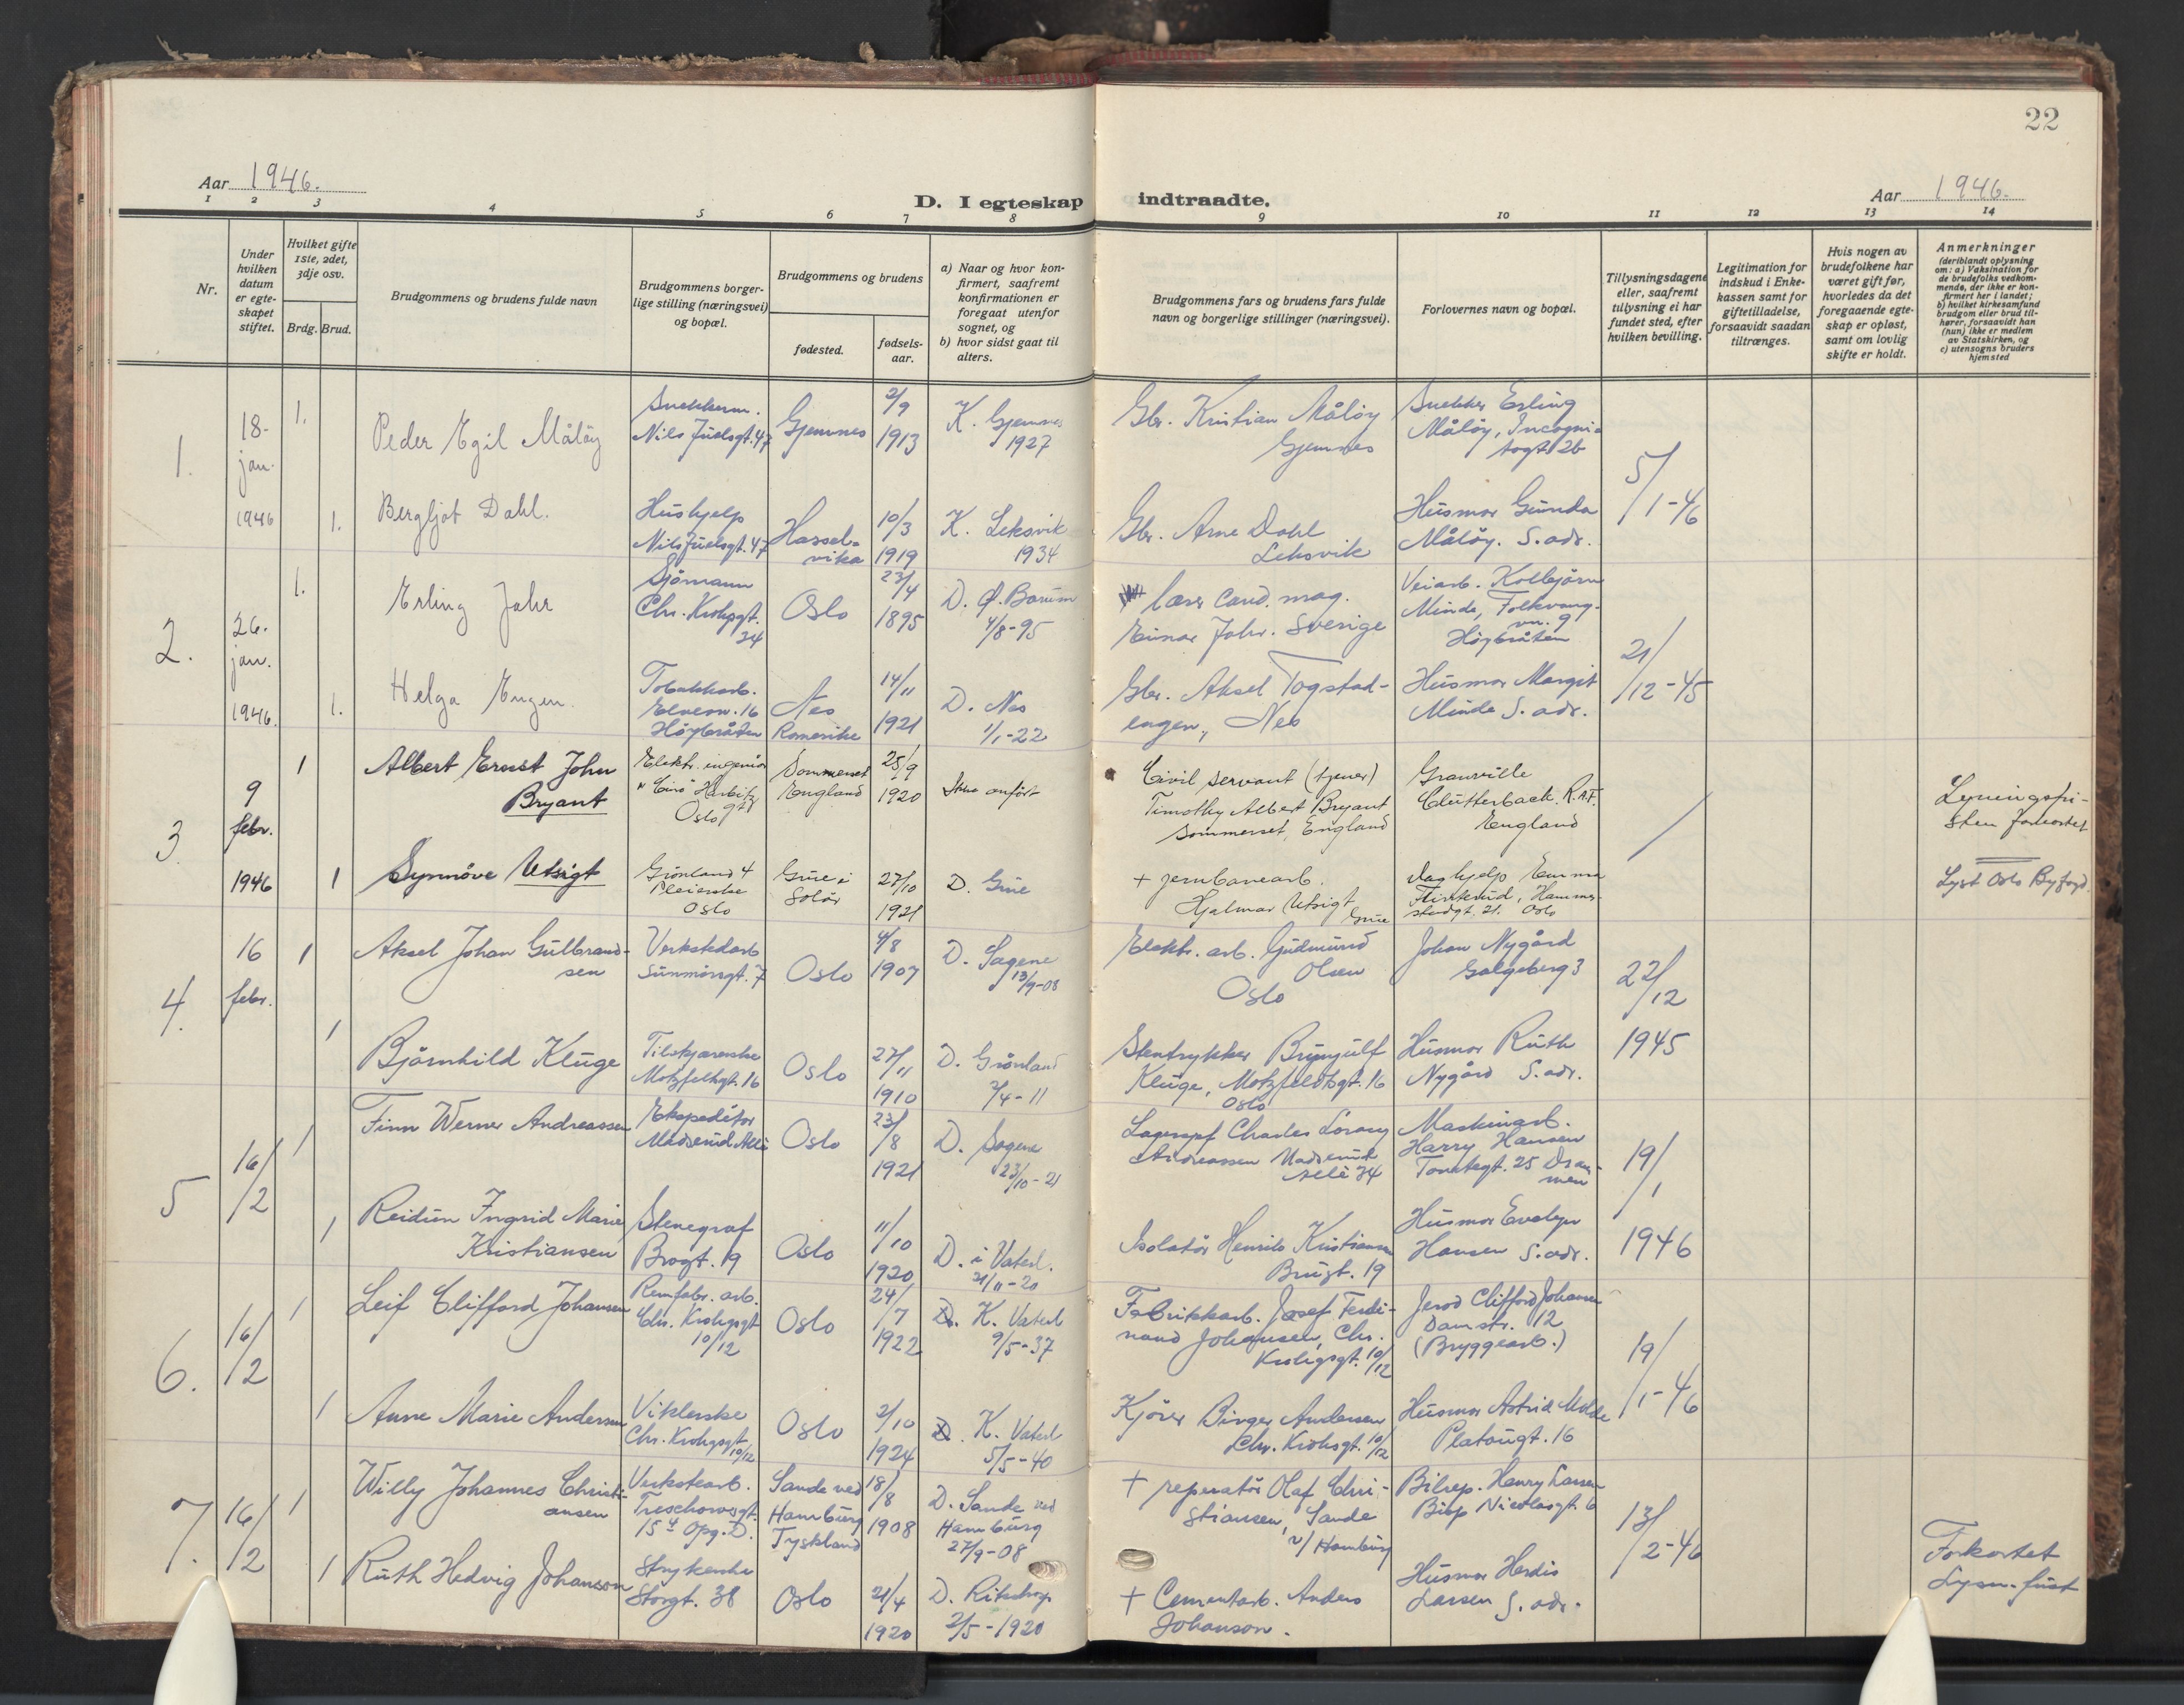 22
Aar 1946.
D. I egteskap indtraadte.
Aar 1946.
1 2 3 4 5 6 7 8 9 10 11 12 13 14
Nr.
Under hvilken datum er egteskapet stiftet.
Hvilket gifte 1ste, 2det, 3dje osv.
Brdg. Brud.
Brudgommens og brudens fulde navn
Brudgommens borgerlige stilling (næringsvei) og bopæl.
Brudgommens og brudens
fødested.
fødselsaar.
a) Naar og hvor konfirmert, saafremt konfirmationen er foregaat utenfor sognet, og
b) hvor sidst gaat til alters.
Brudgommens fars og brudens fars fulde navn og borgerlige stillinger (næringsvei).
Forlovernes navn og bopæl.
Tillysningsdagene eller, saafremt tillysning ei har fundet sted, efter hvilken bevilling.
Legitimation for indskud i Enkekassen samt for giftetilladelse, forsaavidt saadan tiltrænges.
Hvis nogen av brudefolkene har været gift før, hvorledes da det foregaaende egteskap er opløst, samt om lovlig skifte er holdt.
Anmerkninger
(deriblandt oplysning om: a) Vaksination for de brudefolks vedkommende, der ikke er konfirmert her i landet;
b) hvilket kirkesamfund brudgom eller brud tilhører, forsaavidt han (hun) ikke er medlem av Statskirken, og
c) utensogns bruders hjemsted
1.
18-
jan.
1946
1.
Peder Egil Måløy
Snekkerm.
Nils Juelsgt. 47
Gjemnes
2/9
1913
K. Gjemnes
1927
Gbr. Kristian Måløy
Gjemnes
Snekker Erling
Måløy, Incogni-
togt 2b
5/1-46
1.
Bergljot Dahl.
Hushjelp
Nils Juelsgt. 47
Hassel-
vika
10/3
1919
K. Leksvik
1934
Gbr. Arne Dahl
Leksvik
Husmor Gunda
Måløy. S. adr.
2.
26.
jan.
1946.
1.
Erling Jahr
Sjömann
Chr. Krohgsgt.
34
Oslo
23/4
1895
D. Ø. Bærum
4/8-95
lærer Cand. mag.
Einar Jahr. Sverige
Veiarb. Kolbjörn
Minde, Folkvang-
vn. 9
Höybråten
21/12-45
1.
Helga Engen.
Tobakkarb.
Elvesv. 16
Höybråten
Nes
Romerike
14/11
1921
D. Nes
1/1-22
Gbr. Aksel Togstad-
engen, Nes
Husmor Margit
Minde S. adr.
3.
9
febr.
1946
1
Albert Ernest John
Bryant
Elektr. ingeniör
Oslo
Sommerset
England
25/9
1920
Ikke anfört
Civil servant (tjener)
Timothy Albert Bryant
Sommerset, England
Granville
Clutterback. R.A.F.
England
/
Lysningsfri-
sten forkortet
1
Synnöve Utsigt
Grönland 4
Pleierske
Oslo
Grue i
Solör
27/10
1921
D. Grue
+ jernbanearb.
Hjalmar Utsigt
Grue
Daghjelp Emma
Flinterud, Hammer-
stadgt. 21. Oslo
Lyst Oslo Byfogd.
4.
16
febr.
1
Aksel Johan Gulbrand-
sen
Verkstedarb
Sunmörsgt. 7
Oslo
4/8
1907
D. Sagene
13/9-08
Elektr. arb. Gudmund
Olsen
Oslo
Johan Nygård
Galgeberg 3
22/12
1945
1
Björnhild Kluge
Tilskjærerske
Motzfeldtgt. 16
Oslo
27/11
1910
D. Grönland
2/4-11
Stentrykker Brynjulf
Kluge, Motzfeldtsgt. 16
Oslo
Husmor Ruth
Nygård S. adr.
5
16/2
1
Finn Werner Andreassen
Ekspeditör
Madserud Allé
Oslo
23/8
1921
D. Sagene
23/10-21
Andreassen Madserud
Allé 34
Maskinarb.
Harry Hansen
25 Dram-
men
19/1
1946
1
Reidun Ingrid Marie
Kristiansen
Stenograf
Brugt. 19
Oslo
11/10
1920
D. i Vaterl.
21/11-20
Isolatör Henrik Kristiansen
Brugt. 19
Husmor Evelyn
Hansen S. adr.
6.
16/2
1
Leif Clifford Johansen
Remfabr. arb.
Chr. Krohgsgt
10/12
Oslo
24/7
1922
K. Vaterl
9/5-37
Fabrikkarb. Josef Ferdi-
nand Johansen, Chr.
Krohgsgt. 10/12
Clifford Johansen
Damstr. 12
(Bryggearb.)
19/1-46
1
Anne Marie Andersen
Viklerske
Chr. Krohgsgt
10/12
Oslo
2/10
1924
K. Vaterl
5/5-40
Kjörer Birger Andersen
Chr. Krohgsgt. 10/12
Husmor Astrid Molde
Platougt. 16
7.
16/2
1
Willy Johannes Christi-
ansen
Verkstearb.
Treschowsgt.
15 4 Opg. D.
Sande ved
Hamburg
Tyskland
18/8
1908
D. Sande ved
Hamburg
27/9-08
+ reperatör Olaf Chri-
stiansen, Sande
v/ Hamburg
Bilrep. Henry Larsen
Bisp Nicolasgt. 6
13/2-46
Forkortet
Lysn. frist
1
Ruth Hedvig Johanson
Strykerske
Storgt. 38
Oslo
21/4
1920
2/5-1920
+ Cementarb. Anders
Johanson.
Husmor Herdis
Larsen S. adr.